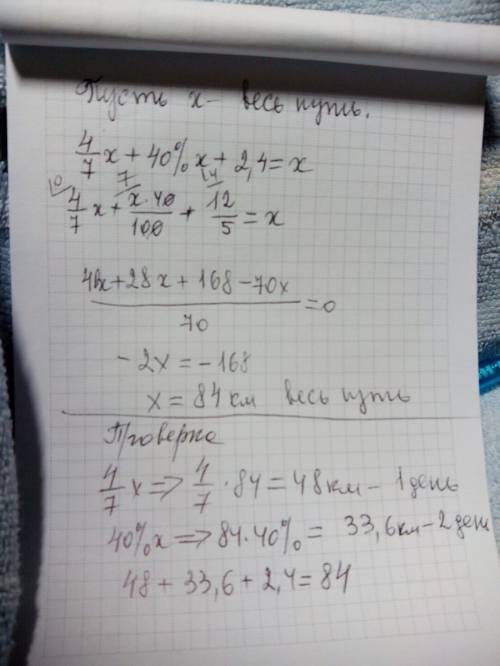 Пусть x - весь путь.
4/7 x + 40% x + 2,4 = x
10 7 14
4/7 x + x·40/100 + 12/5 = x
40x + 28x + 168 - 70x / 70 = 0
- 2x = - 168
x = 84 км весь путь
Проверка
4/7 x => 4/7 · 84 = 48 км - 1 день
40% x => 84·40% = 33,6 км - 2 день
48 + 33,6 + 2,4 = 84